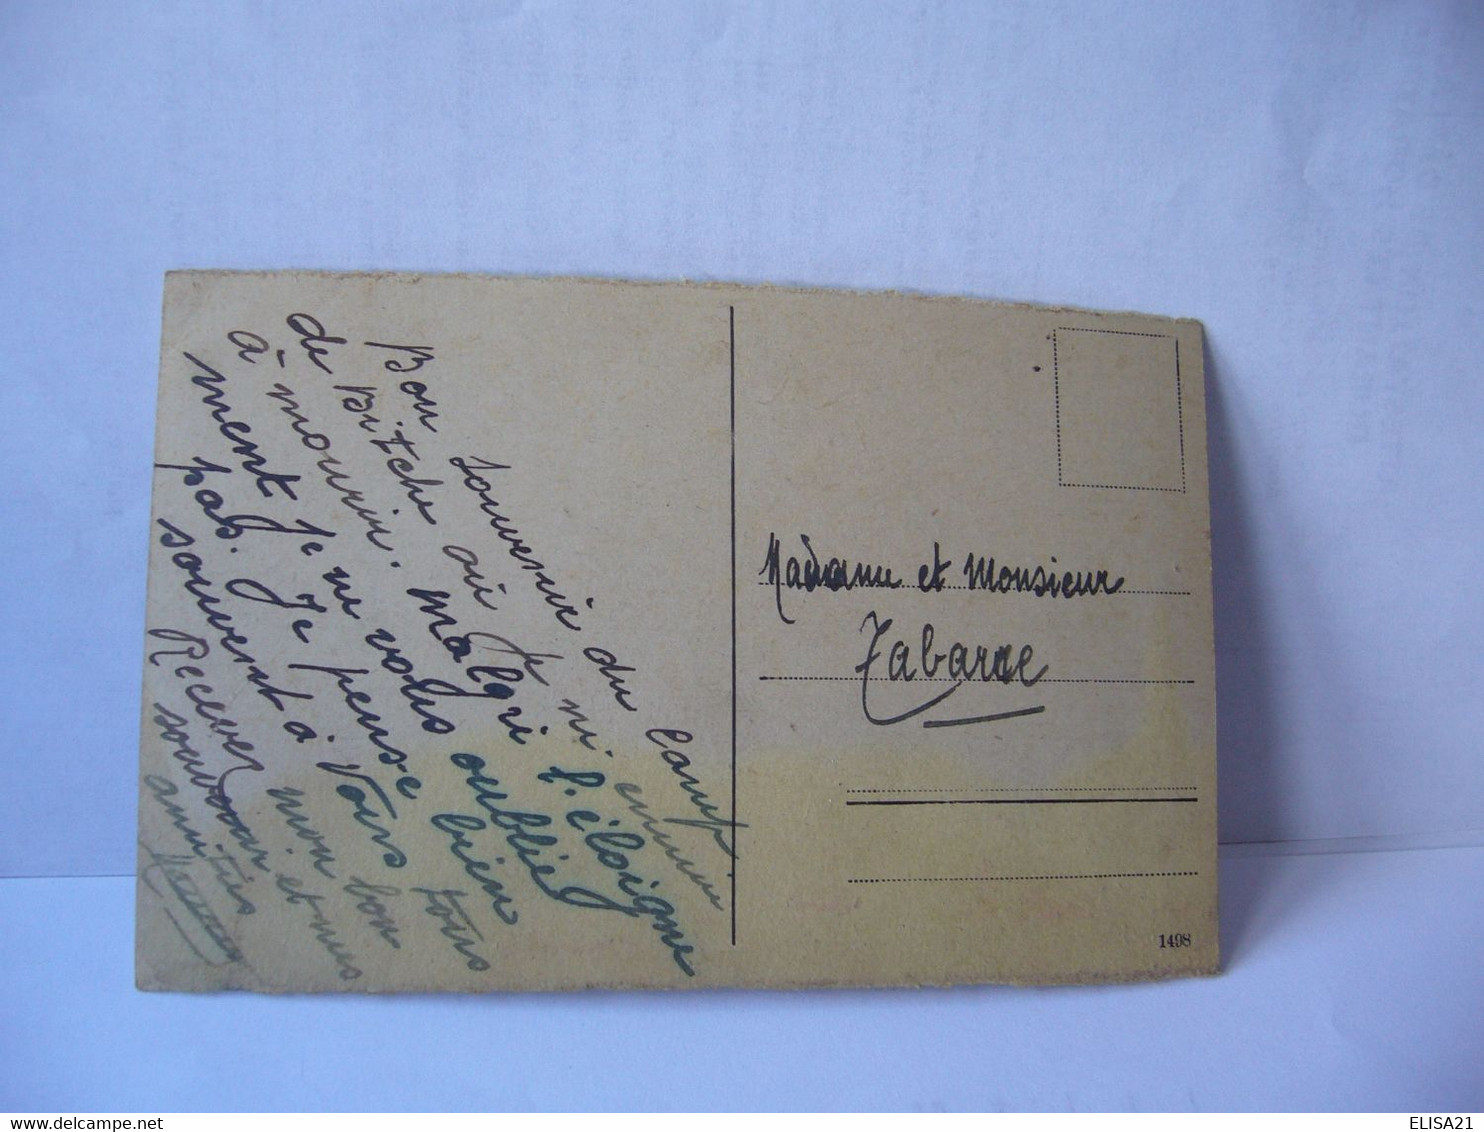 Bon souvenir du camp
de Bitche où je m'ennui
à mourir. malgré l'éloigne
ment je ne vous oublie
pas. Je pense bien
souvent à Vous tous
Recever mon bon
souvenir et mes
amitiés
Madame et Monsieur
Tabarne
1498
delcampe.net
ELISA21